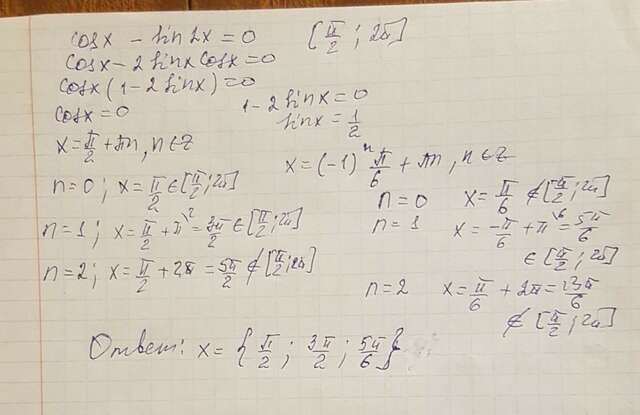 cosx - sin2x = 0 [π/2 ; 2π]
cosx - 2 sinx cosx = 0
cosx (1 - 2 sinx) = 0
cosx = 0 1 - 2 sinx = 0
sinx = 1/2
x = π/2 + πn, n ∈ Z
x = (-1)^n π/6 + πn, n ∈ Z
n = 0 ; x = π/2 ∈ [π/2 ; 2π]
n = 0 x = π/6 ∉ [π/2 ; 2π]
n = 1 ; x = π/2 + π = 3π/2 ∈ [π/2 ; 2π]
n = 1 x = -π/6 + π = 5π/6
∈ [π/2 ; 2π]
n = 2 ; x = π/2 + 2π = 5π/2 ∉ [π/2 ; 2π]
n = 2 x = π/6 + 2π = 13π/6
∉ [π/2 ; 2π]
Ответ: x = {π/2 ; 3π/2 ; 5π/6}